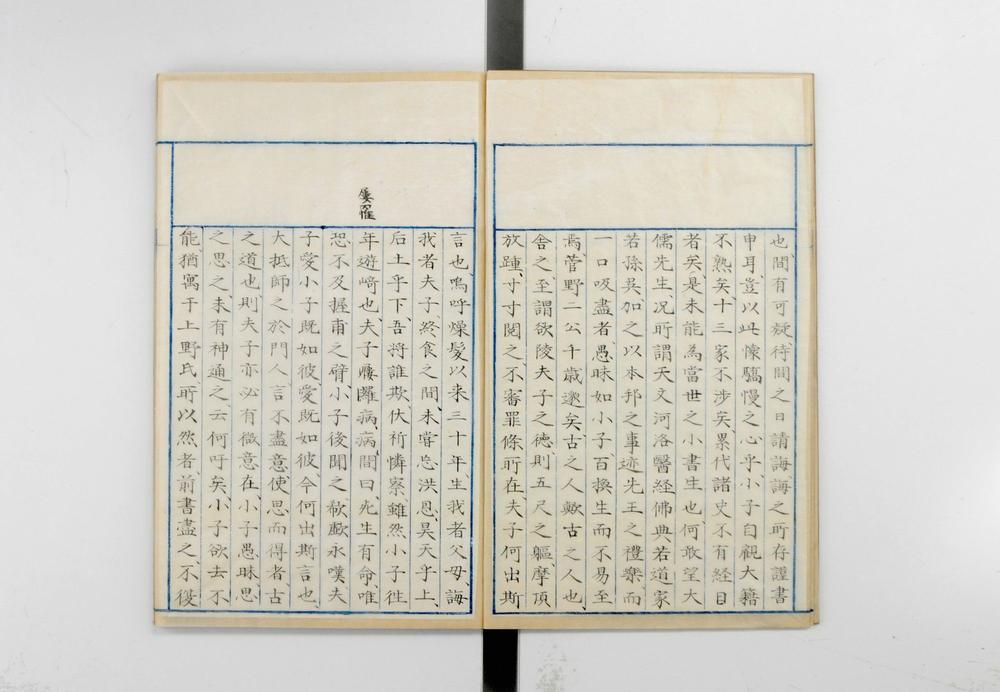 也、間有可疑、待間之日請誨、誨之所存謹書
申耳、豈以此懐驕慢之心乎、小子自親大籍
不熟矣、十三家不渉矣、累代諸史不有経目
者矣、是未能為當世之小書生也、何敢望大
儒先生、况所謂天文河洛醫経佛典若道家
若孫吴加之以本邦之事迹先王之禮樂而
一口吸盡者、愚昧如小子、百換生而不易至
焉、菅野二公千歳邈矣、古之人歟古之人也、
舎之、至謂欲陵夫子之徳、則五尺之軀、摩頂
放踵、寸寸閲之、不審罪條所在、夫子何出斯
言也、嗚呼燥髮以来三十年、生我者父母、誨
我者夫子、終食之間、未嘗忘洪恩、昊天乎上、
后土乎下、吾将誰欺、伏祈憐察、雖然小子往
年遊﨑也、夫子屢䍦病、病間曰先生有命、唯
屢罹
恐不及握甫之臂、小子後聞之、欷歔永嘆、夫
子愛小子既如彼、愛既如彼、今何出斯言也、
大抵師之於門人、言不盡意、使思而得者、古
之道也、則夫子亦必有微意在、小子愚昧、思
之思之、未有神通之、云何吁矣、小子欲去不
能、猶寓于上野氏、所以然者、前書盡之、不復